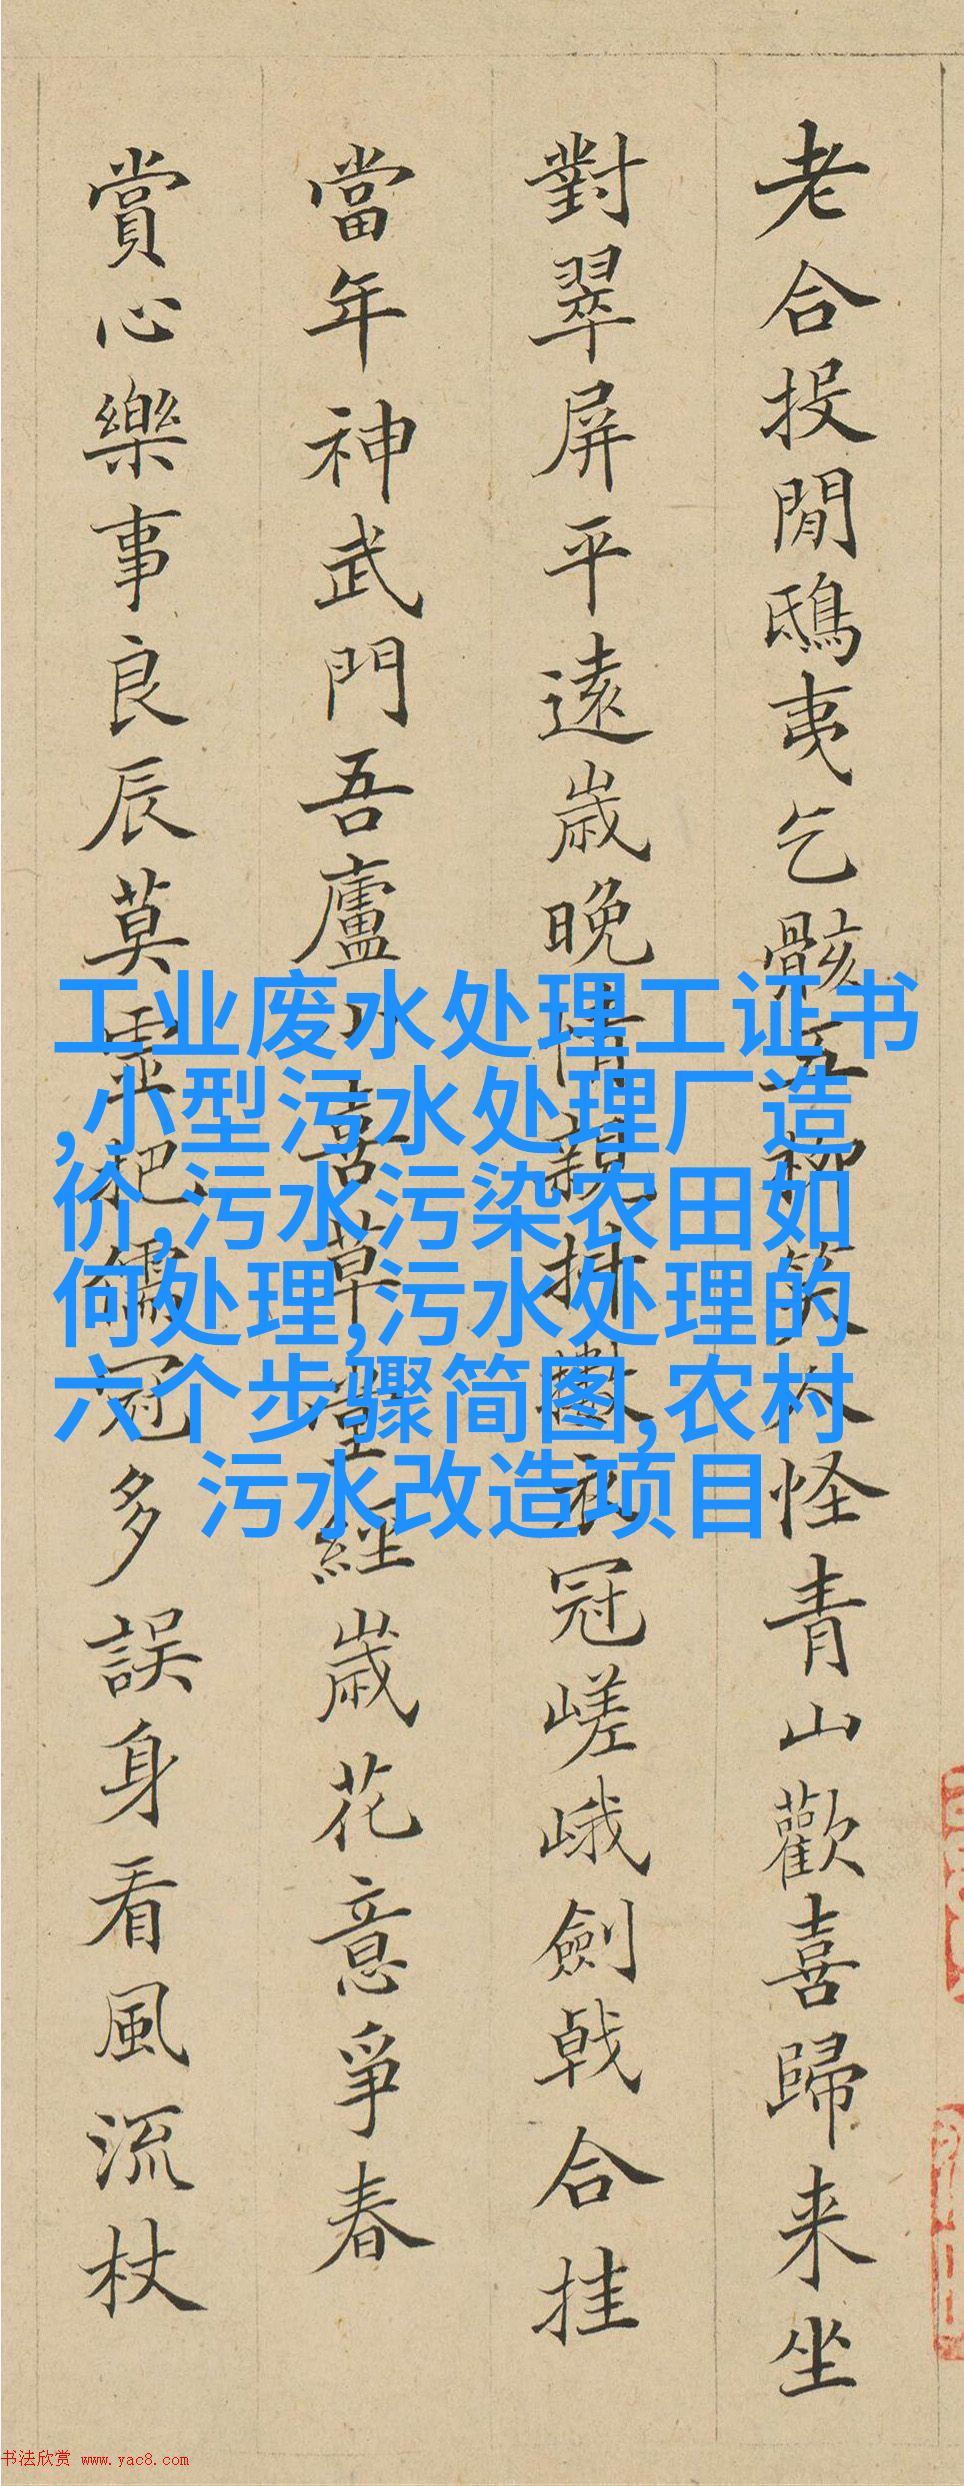 老合投閒鴟夷乞骸五柳笑人怪青山歡喜歸来坐
對翠屏平遠歲晚情親抖擻衣冠嵯峨劍戟合挂
當年神武門吾廬小草堂經歲花意爭春
賞心樂事良辰莫把儒冠多誤身看風流杖
工业废水处理工证书
,小型污水处理厂造
价,污水污染农田如
何处理,污水处理的
六个步骤简图,农村
污水改造项目
书法欣赏 www.yac8.com